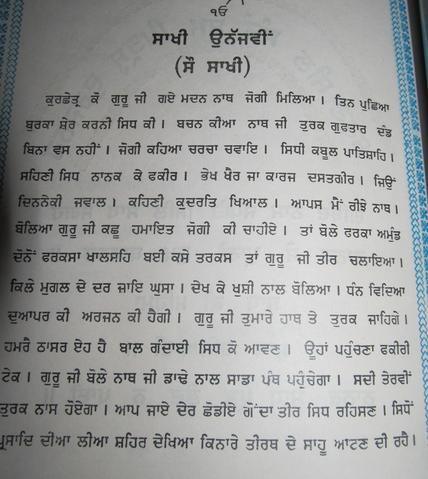 ੧ੳ
ਸਾਖੀ ਉਨੱਜਵੀਂ
(ਸੌ ਸਾਖੀ)
ਕੁਰਛੇਤ੍ਰ ਕੋ ਗੁਰੂ ਜੀ ਗਏ ਮਦਨ ਨਾਥ ਜੋਗੀ ਮਿਲਿਆ। ਤਿਨ ਪੁਛਿਆ
ਬੁਰਕਾ ਸ਼ੇਰ ਕਰਨੀ ਸਿਧ ਕੀ। ਬਚਨ ਕੀਆ ਨਾਥ ਜੀ ਤੁਰਕ ਗੁਫਤਾਰ ਦੰਡ
ਬਿਨਾ ਵਸ ਨਹੀਂ। ਜੋਗੀ ਕਹਿਆ ਚਰਚਾ ਚਵਾਇ। ਸਿਧੀ ਕਬੂਲ ਪਾਤਿਸ਼ਾਹਿ।
ਸਹਿਣੀ ਸਿਧ ਨਾਨਕ ਕੇ ਫਕੀਰ। ਭੇਖ ਖੈਰ ਜਾ ਕਾਰਜ ਦਸਤਗੀਰ। ਜਿਉਂ
ਦਿਨਨੇਕੀ ਜਵਾਲ। ਕਹਿਣੀ ਕੁਦਰਤਿ ਖਿਆਲ। ਆਪਸ ਮੈਂ ਰੀਝੇ ਨਾਥ।
ਬੋਲਿਆ ਗੁਰੂ ਜੀ ਕਛੂ ਹਮਾਇਤ ਜੋਗੀ ਕੀ ਚਾਹੀਏ। ਤਾਂ ਬੋਲੇ ਫਰਕਾ ਅਮੁੰਡ
ਦੋਨੋਂ ਫਰਕਸਾ ਖਾਲਸਹਿ ਬਈ ਕਸੇ ਤਰਕਸ ਤਾਂ ਗੁਰੂ ਜੀ ਤੀਰ ਚਲਾਇਆ।
ਕਿਲੇ ਮੁਗਲ ਦੇ ਦਰ ਜਾਇ ਘੁਸਾ। ਦੇਖ ਕੇ ਖੁਸ਼ੀ ਨਾਲ ਬੋਲਿਆ। ਧੰਨ ਵਿਦਿਆ
ਦੁਆਪਰ ਕੀ ਅਰਜਨ ਕੀ ਹੈਗੀ। ਗੁਰੂ ਜੀ ਤੁਮਾਰੇ ਹਾਥ ਤੇ ਤੁਰਕ ਜਾਹਿਗੇ।
ਹਮਰੈ ਠਾਸਰ ਏਹ ਹੈ ਬਾਲ ਗੰਦਾਈ ਸਿਧ ਕੋ ਆਵਣ। ਊਹਾਂ ਪਹੁੰਚਣਾ ਫਕੀਰੀ
ਟੇਕ। ਗੁਰੂ ਜੀ ਬੋਲੇ ਨਾਥ ਜੀ ਡਾਢੇ ਨਾਲ ਸਾਡਾ ਪੰਥ ਪਹੁੰਚੇਗਾ। ਸਦੀ ਤੇਰਵੀਂ
ਤੁਰਕ ਨਾਸ ਹੋਏਗਾ। ਆਪ ਜਾਏ ਦੇਰ ਛੋਡੀਏ ਗੋਂਦਾ ਤੀਰ ਸਿਧ ਰਹਿਸਣ। ਸਿਧੋਂ
ਪ੍ਰਸਾਦਿ ਦੀਆ ਲੀਆ ਸ਼ਹਿਰ ਦੇਖਿਆ ਕਿਨਾਰੇ ਤੀਰਥ ਦੇ ਸਾਹੂ ਆਟਣ ਦੀ ਰਹੈ।